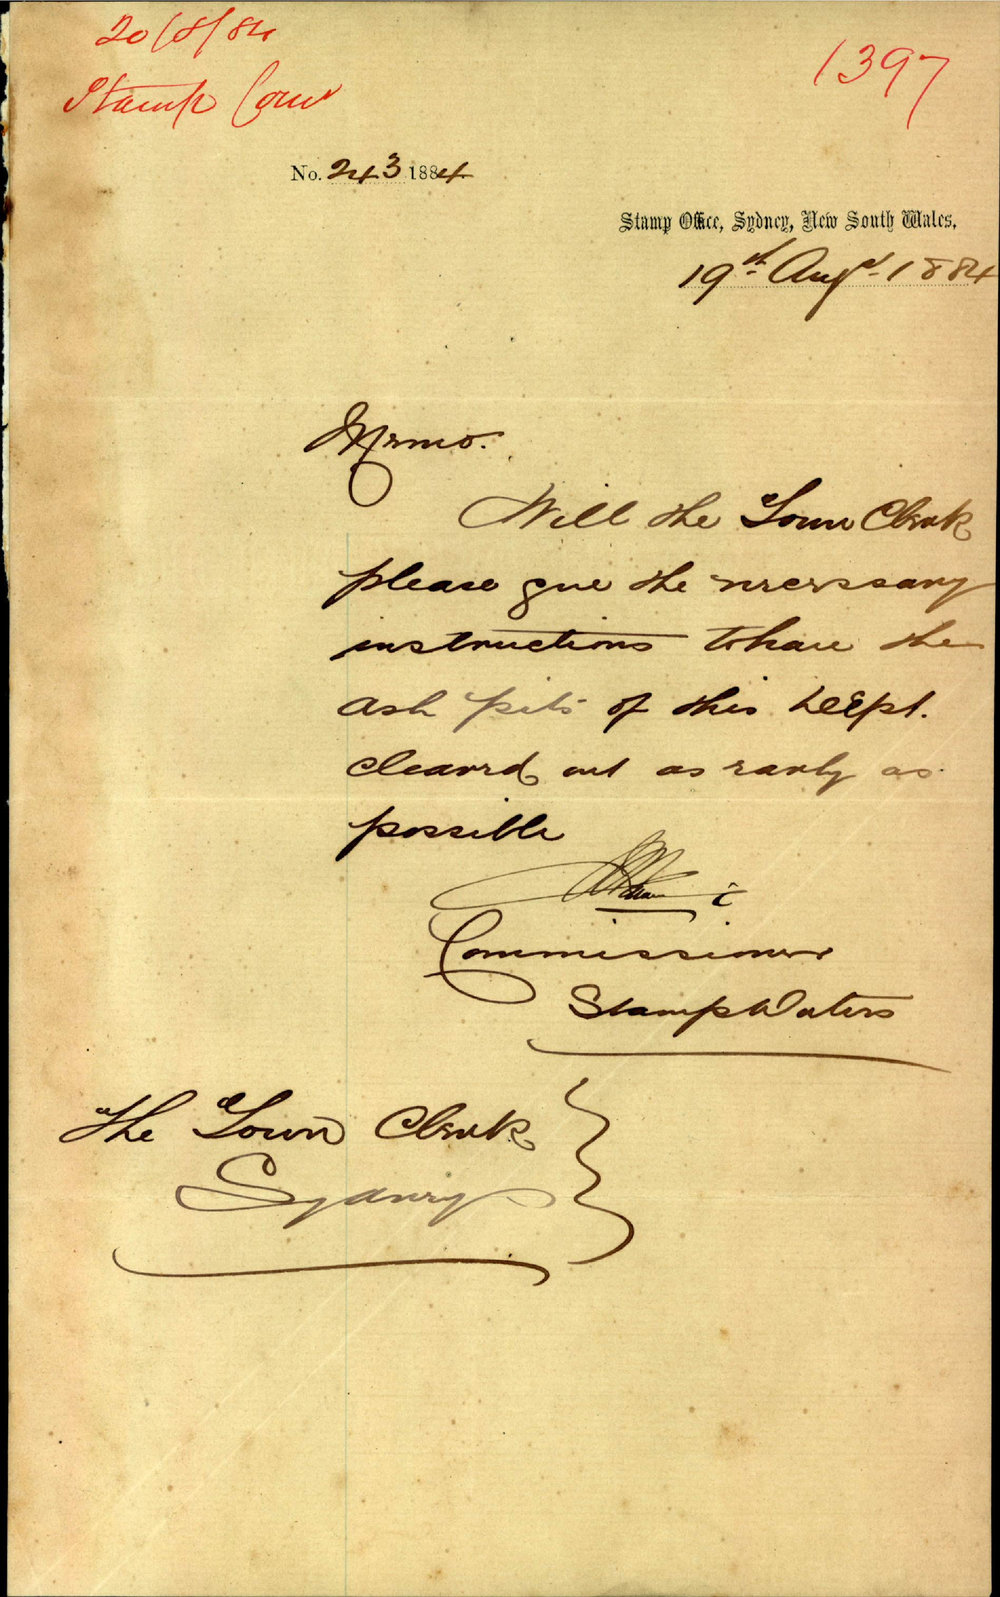 20/8/84
1397
Stamp Com
No. 243 1884
Stamp Office, Sydney, New South Wales,
19th Augt. 1884
Memo.
Will the Town Clerk
please give the necessary
instructions to have the
ash pits of this Dept.
cleared out as early as
possible
Commissioner
Stamp Duties
The Town Clerk
Sydney